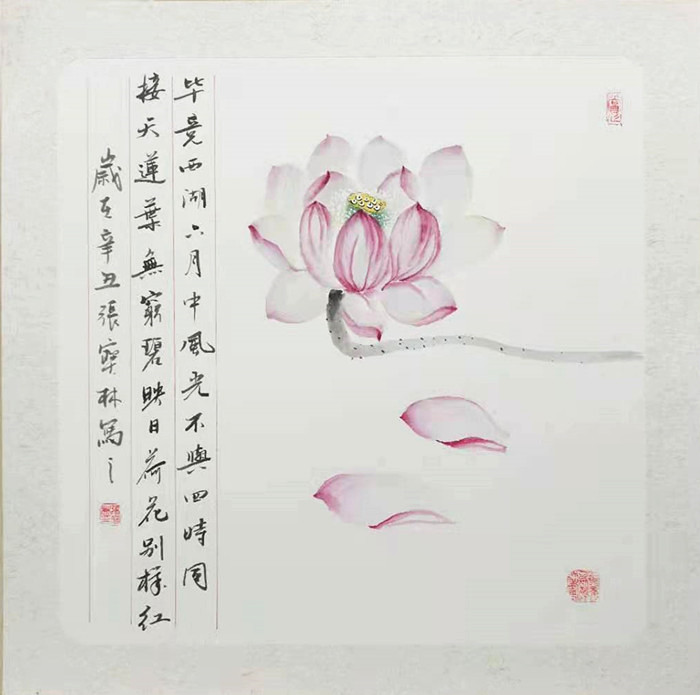 毕竟西湖六月中風光不與四時同
接天蓮葉無窮碧映日荷花别樣红
歲在辛丑張寶林寫之